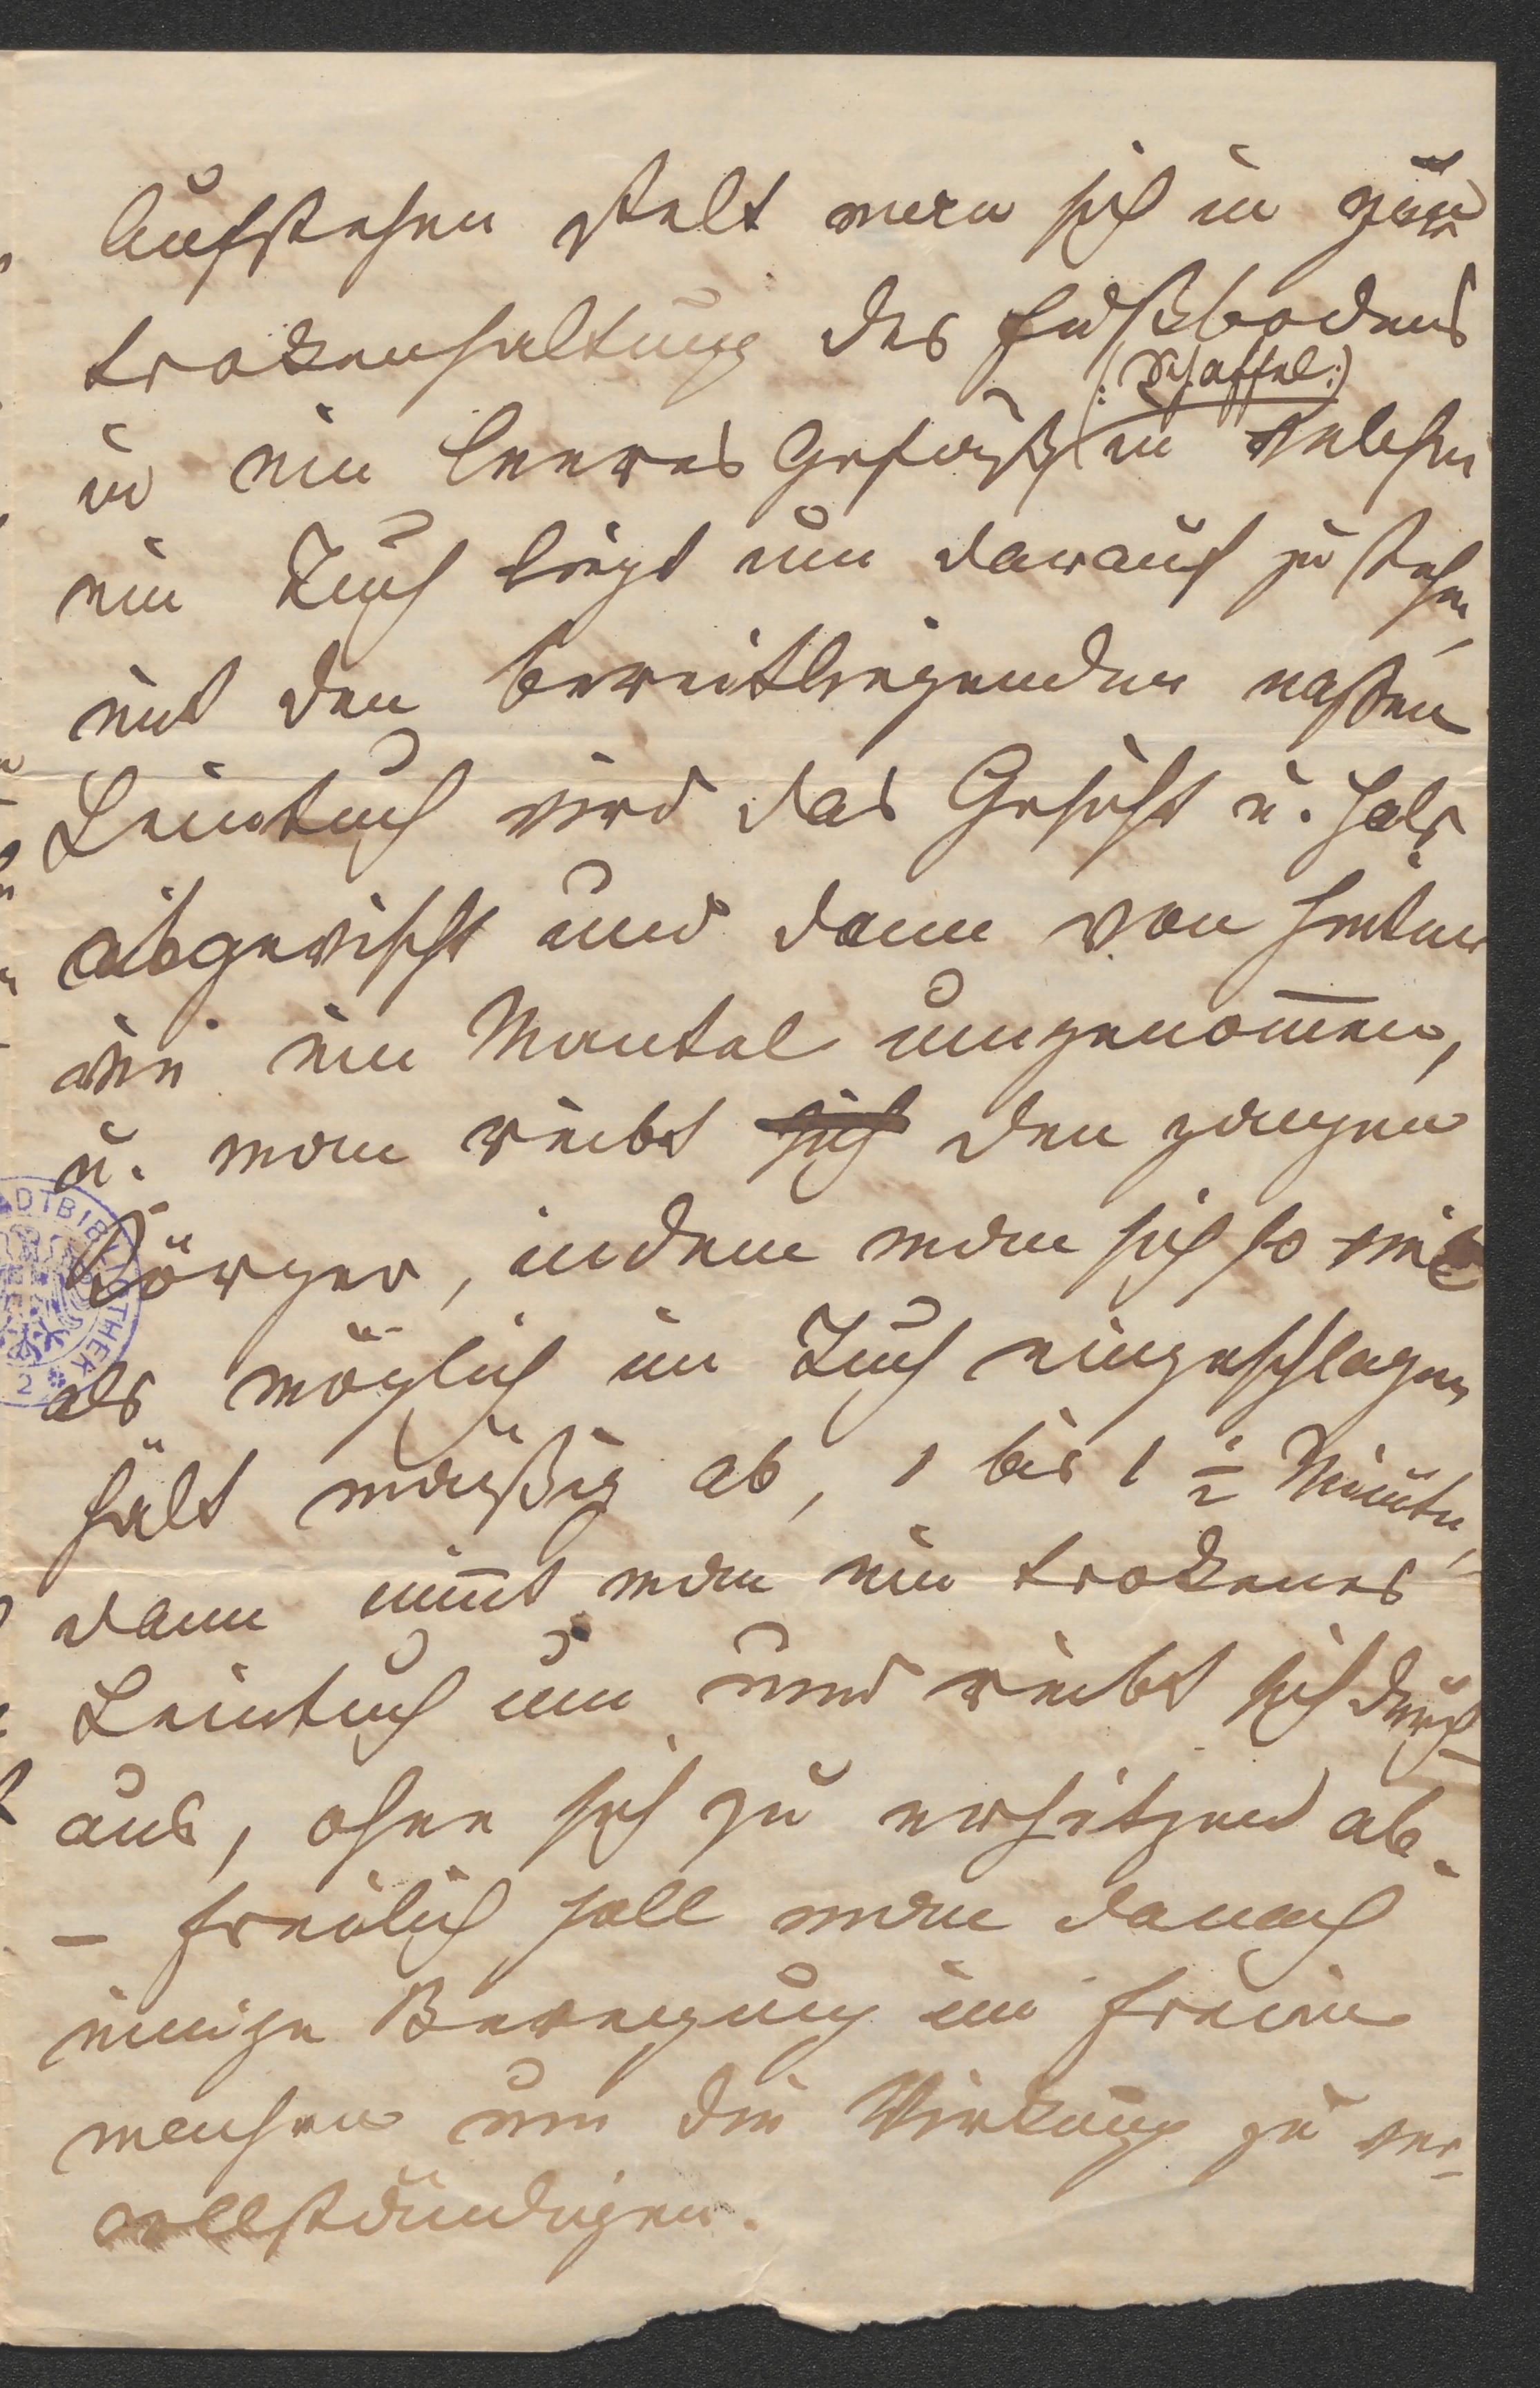 Aufstehen stelt man sich in zur
trokenhaltung des Fußbodens
in ein leeres Gefäß (: Schaffel :) in welchen
ein Tuch liegt um darauf zu stehen,
mit den bereitliegenden naßen
Leintuch wird das Gesicht u. Hals
abgewischt und dann von hinten
wie ein Mantel umgenom̄en,
u. man reibt sich den ganzen
Körper, indem man sich so viel
als möglich im Tuch eingeschlagen
hält mäßig ab, 1 bis 1 ½ Minuten,
dann nim̄t man ein trokenes
Leintuch um und reibt sich durch-
aus, ohne sich zu erhitzen ab.
– freilich soll man danach
einige Bewegung im freien
machen um die Wirkung zu ver-
vollständigen.
DTBIBLIOTHEK